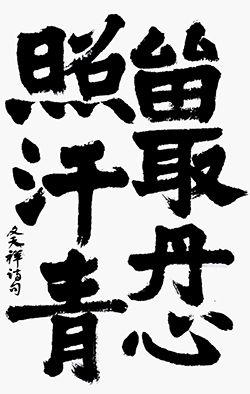 留取丹心
照汗青
文天祥诗句